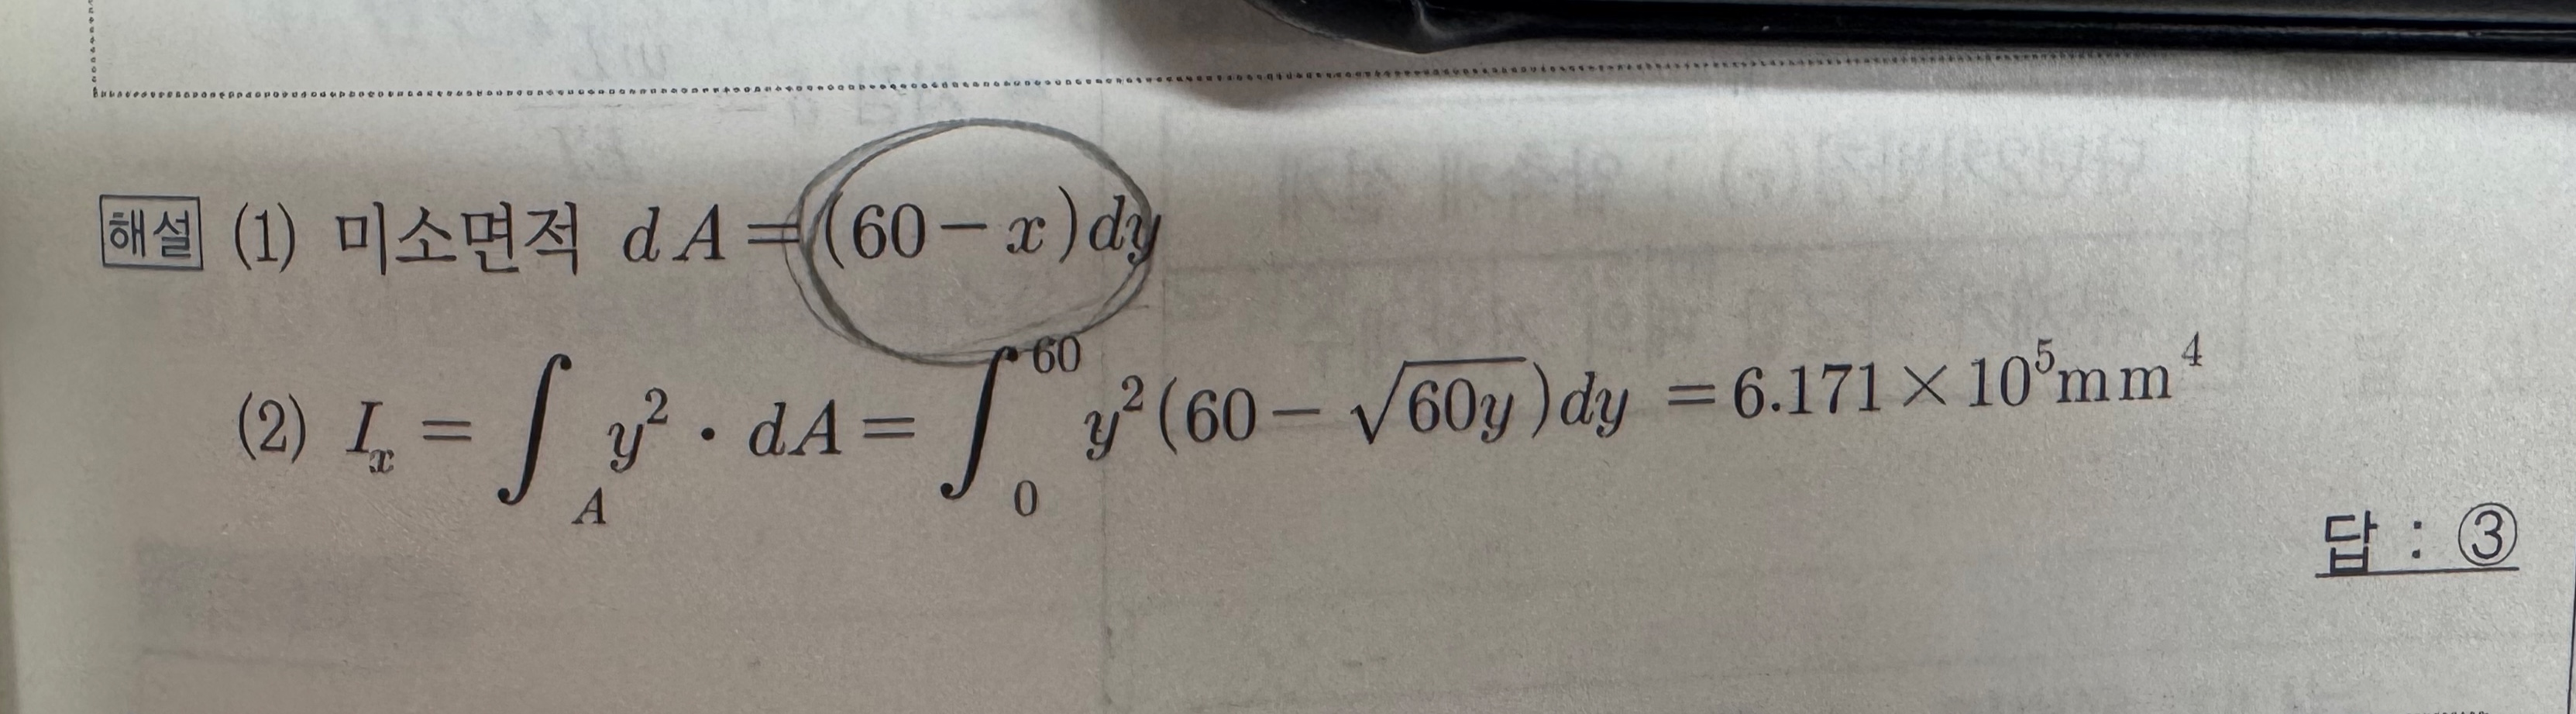 해설 (1) 미소면적 dA=(60-x)dy
(2) I_x = ∫_A y² · dA = ∫_0^60 y²(60-√(60y))dy = 6.171×10⁵mm⁴
답 : ③